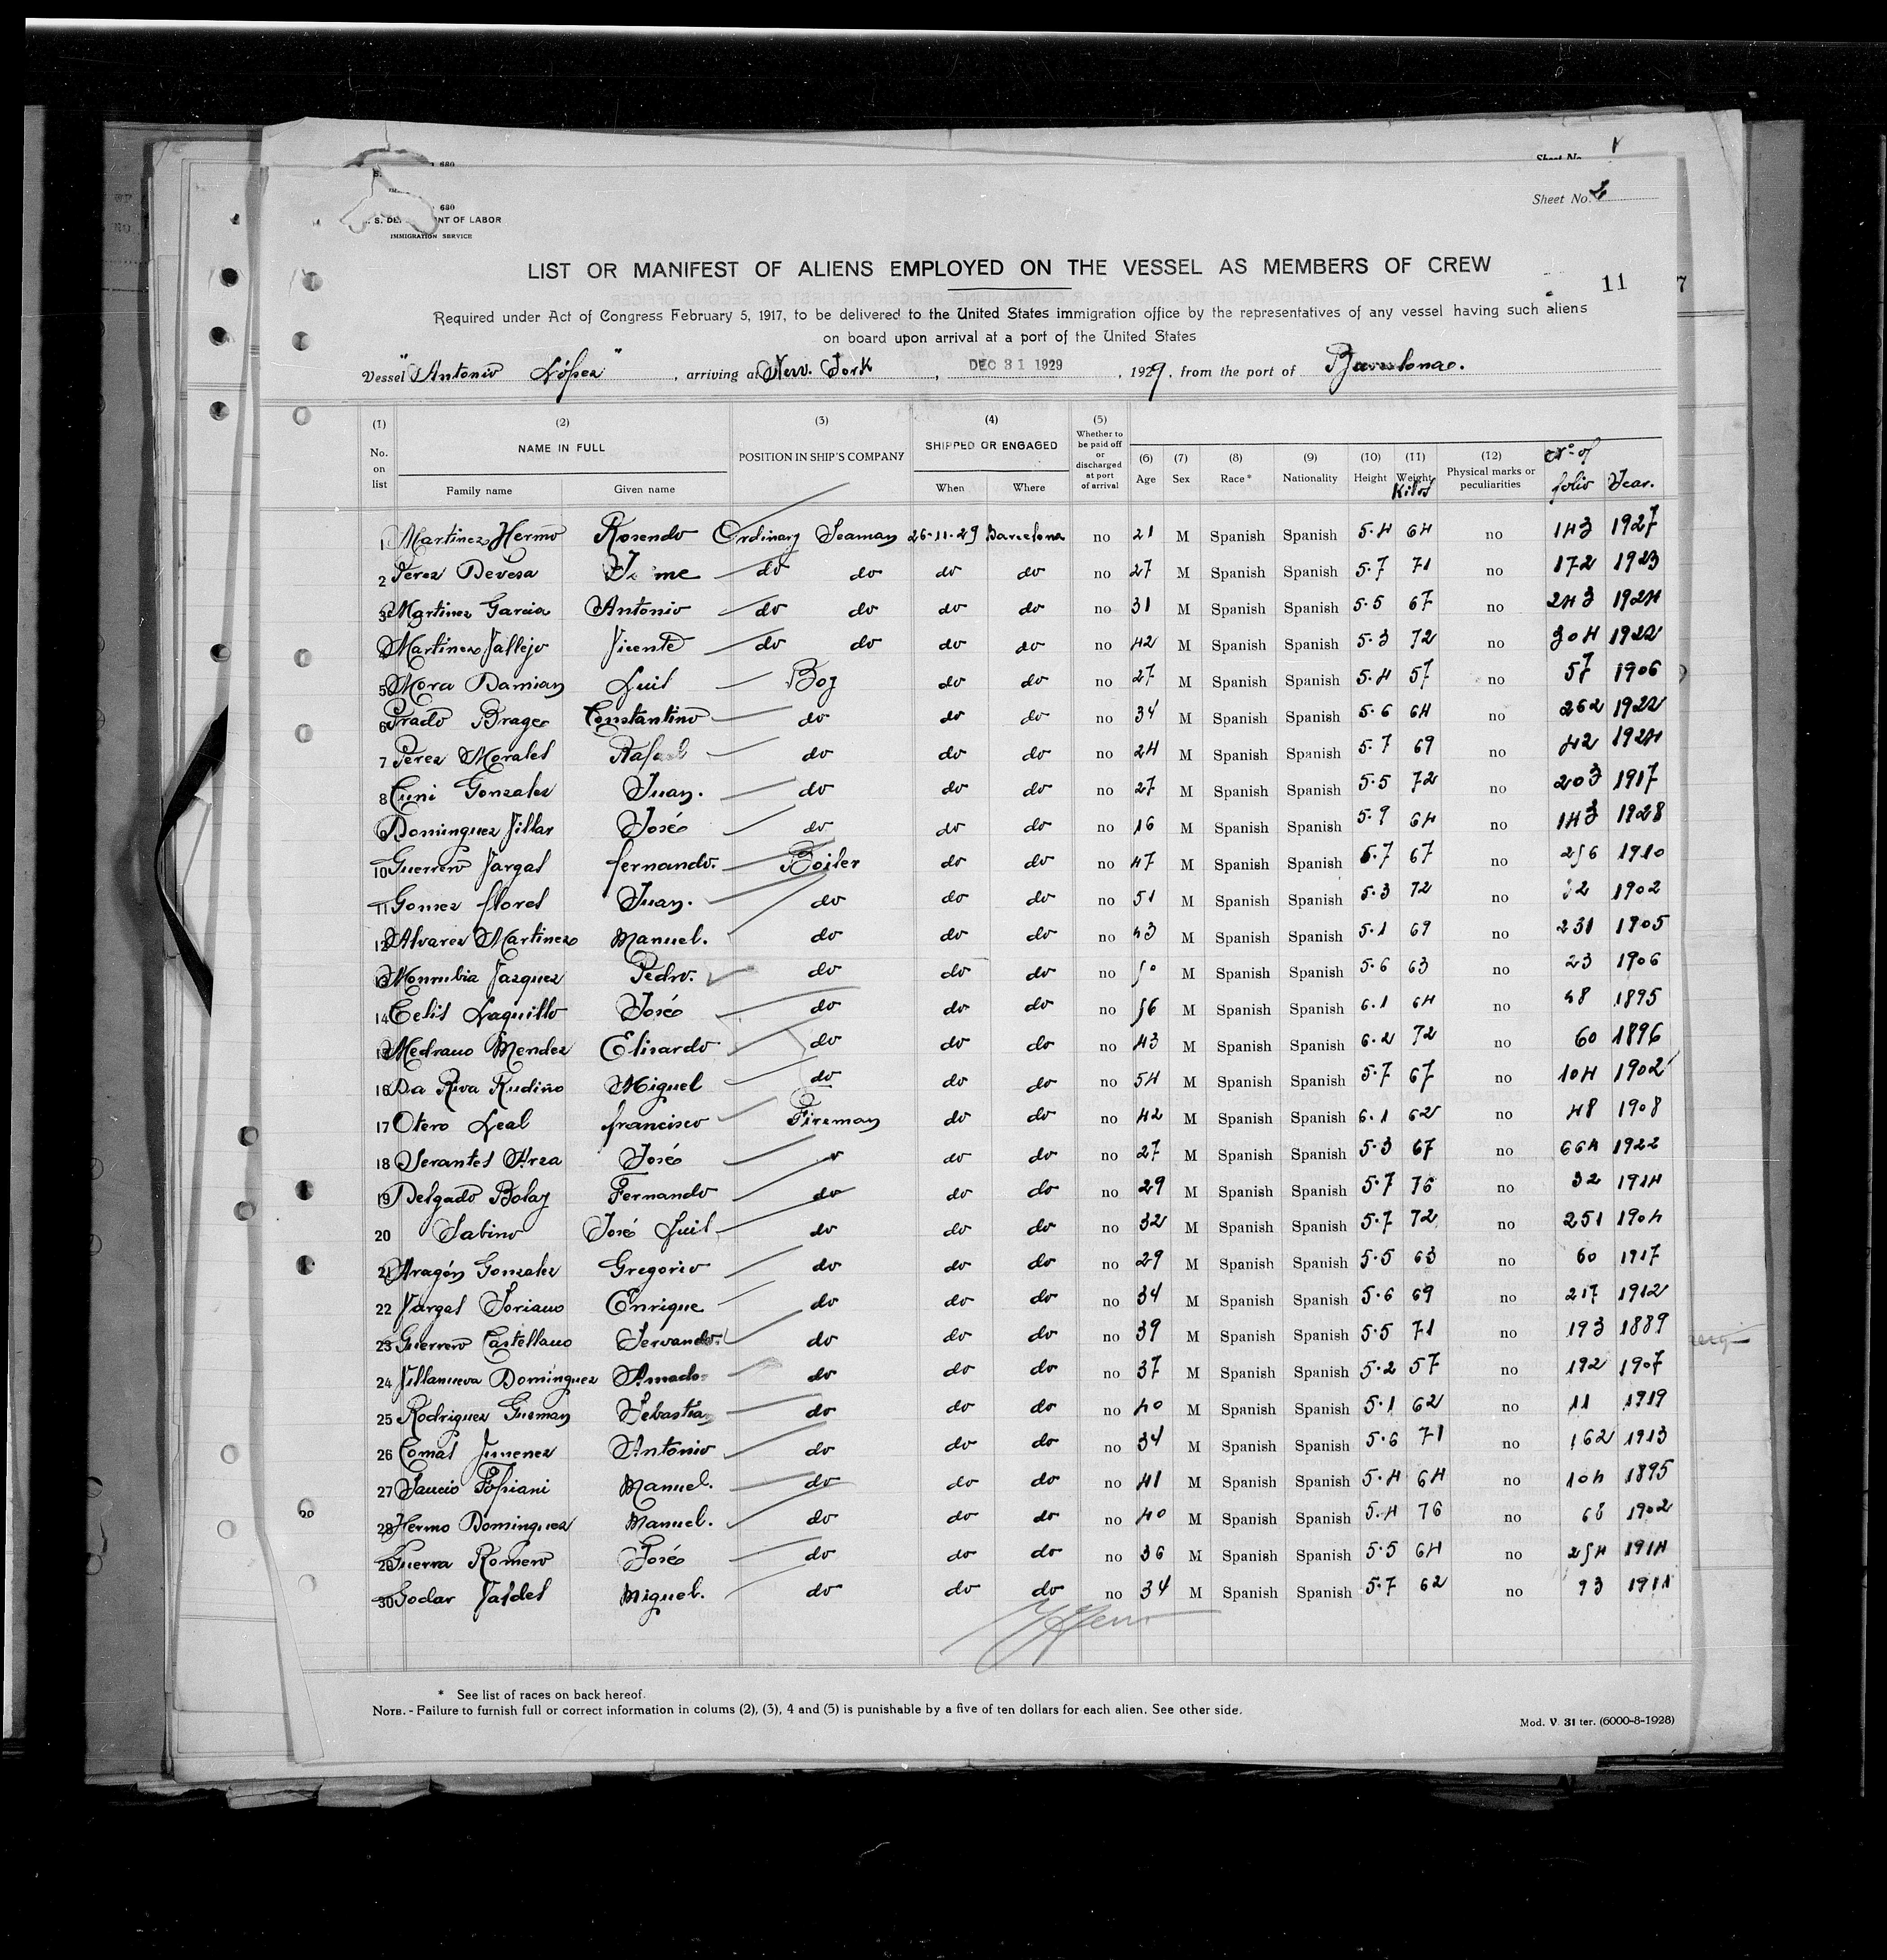 Sheet No. 1
680
Sheet No. 2
680
S. DE NT OF LABOR
IMMIGRATION SERVICE
LIST OR MANIFEST OF ALIENS EMPLOYED ON THE VESSEL AS MEMBERS OF CREW
11
7
Required under Act of Congress February 5, 1917, to be delivered to the United States immigration office by the representatives of any vessel having such aliens
on board upon arrival at a port of the United States
Vessel "Antonio López", arriving at New York, DEC 31 1929, 1929, from the port of Barcelona.
(1) (2) (3) (4) (5) (6) (7) (8) (9) (10) (11) (12)
No. on list NAME IN FULL POSITION IN SHIP'S COMPANY SHIPPED OR ENGAGED Whether to be paid off or discharged at port of arrival Age Sex Race* Nationality Height Weight Kilos Physical marks or peculiarities Nº of folio Year.
Family name Given name When Where
1 Martinez Hermo Rosendo Ordinary Seaman 26-11-29 Barcelona no 21 M Spanish Spanish 5.4 64 no 143 1927
2 Perez Devesa do do do do no 27 M Spanish Spanish 5.7 71 no 172 1923
3 Martinez Garcia Antonio do do do do no 31 M Spanish Spanish 5.5 67 no 243 1924
4 Martinez Vallejo Vicente do do do do no 42 M Spanish Spanish 5.3 72 no 304 1922
5 Mora Damian Luis Boy do do no 27 M Spanish Spanish 5.4 57 no 57 1906
6 Prado Brage Constantino do do do no 34 M Spanish Spanish 5.6 64 no 262 1922
7 Perez Morales Rafael do do do no 24 M Spanish Spanish 5.7 69 no 42 1924
8 Cuni Gonzalez Juan. do do do no 27 M Spanish Spanish 5.5 72 no 203 1917
9 Dominguez Villar José do do do no 16 M Spanish Spanish 5.9 64 no 143 1928
10 Guerrero Vargas fernando. Boiler do do no 47 M Spanish Spanish 5.7 67 no 256 1910
11 Gomez flores Juan. do do do no 51 M Spanish Spanish 5.3 72 no 32 1902
12 Alvarez Martinez Manuel. do do do no 43 M Spanish Spanish 5.1 69 no 231 1905
13 Monrubia Vazquez Pedro. do do do no 50 M Spanish Spanish 5.6 63 no 23 1906
14 Celis Laquillo José do do do no 56 M Spanish Spanish 6.1 64 no 48 1895
15 Medrano Mendez Elisardo do do do no 43 M Spanish Spanish 6.2 72 no 60 1896
16 Da Riva Rudiño Miguel do do do no 54 M Spanish Spanish 5.7 67 no 104 1902
17 Otero Leal francisco Fireman do do no 42 M Spanish Spanish 6.1 62 no 48 1908
18 Serantes Arza José do do no 27 M Spanish Spanish 5.3 67 no 664 1922
19 Delgado Bolay Fernando do do do no 29 M Spanish Spanish 5.7 76 no 32 1914
20 Sabino José Luis do do do no 32 M Spanish Spanish 5.7 72 no 251 1904
21 Aragón Gonzalez Gregorio do do do no 29 M Spanish Spanish 5.5 63 no 60 1917
22 Vargas Soriano Enrique do do do no 34 M Spanish Spanish 5.6 69 no 217 1912
23 Guerrero Castellano Servando. do do do no 39 M Spanish Spanish 5.5 71 no 193 1889
24 Villanueva Dominguez Amado. do do do no 37 M Spanish Spanish 5.2 57 no 192 1907
25 Rodriguez Guzman Sebastian do do do no 40 M Spanish Spanish 5.1 62 no 11 1919
26 Comas Jimenez Antonio do do do no 34 M Spanish Spanish 5.6 71 no 162 1913
27 Saucio Manuel. do do do no 41 M Spanish Spanish 5.4 64 no 104 1895
28 Hermo Dominguez Manuel. do do do no 40 M Spanish Spanish 5.4 76 no 68 1902
29 Guerra Romero José do do do no 36 M Spanish Spanish 5.5 64 no 254 1914
30 Godar Valdes Miguel. do do do no 34 M Spanish Spanish 5.7 62 no 93 1911
* See list of races on back hereof.
NOTE. - Failure to furnish full or correct information in colums (2), (3), 4 and (5) is punishable by a five of ten dollars for each alien. See other side.
Mod. V. 31 ter. (6000-8-1928)